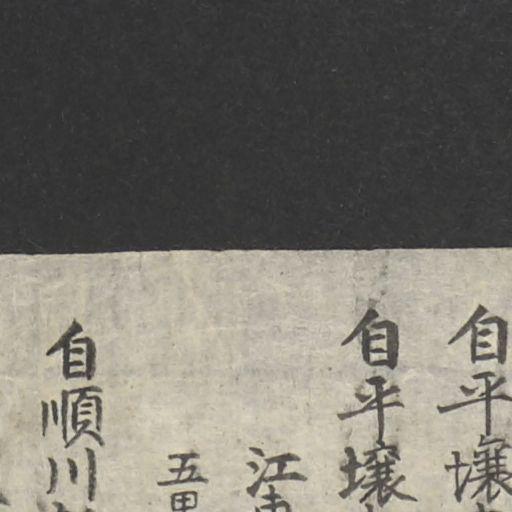 自平壤
自平壤
江東
五里
自順川